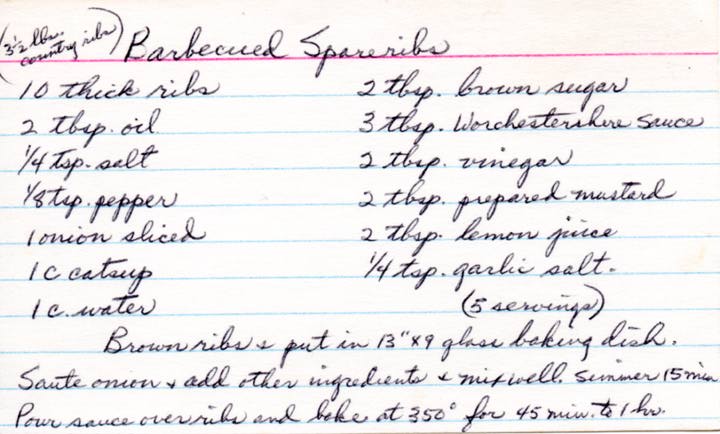 (3 1/2 lbs. country ribs) Barbecued Spareribs
10 thick ribs
2 tbsp. oil
1/4 tsp. salt
1/8 tsp. pepper
1 onion sliced
1 c catsup
1 c. water
2 tbsp. brown sugar
3 tbsp. Worchestershire Sauce
2 tbsp. vinegar
2 tbsp. prepared mustard
2 tbsp. lemon juice
1/4 tsp. garlic salt.
(5 servings)
Brown ribs & put in 13" x 9 glass baking dish.
Saute onion & add other ingredients & mix well. Simmer 15 min
Pour sauce over ribs and bake at 350° for 45 min. to 1 hr.